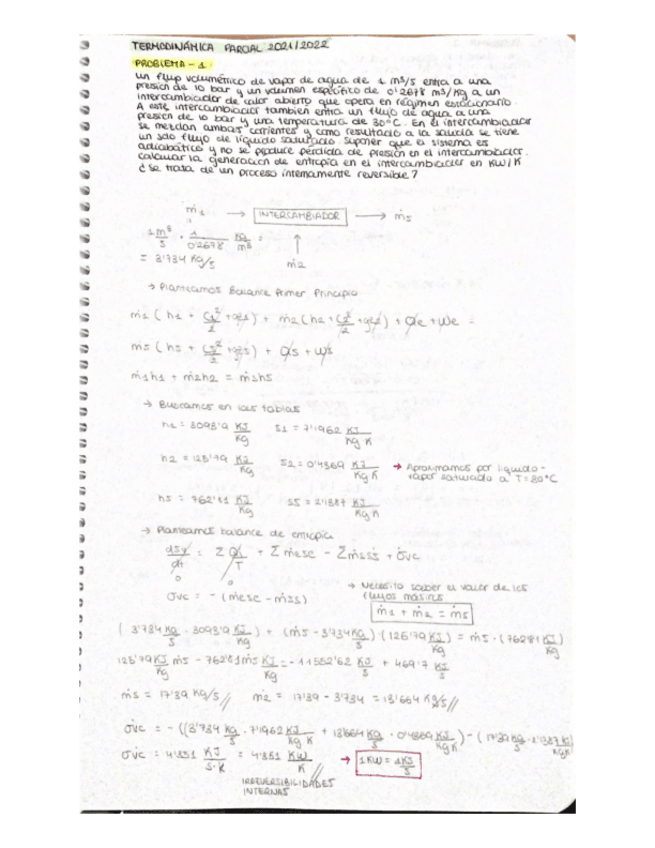 TERMODINÁMICA PARCIAL 2021/2022
PROBLEMA - 1
Un flujo volumétrico de vapor de agua de 1 m³/s entra a una
presión de 10 bar y un volumen específico de 0'2678 m³/kg a un
intercambiador de calor abierto que opera en régimen estacionario.
A este intercambiador también entra un flujo de agua a una
presión de 10 bar y una temperatura de 30°C. En el intercambiador
se mezclan ambas corrientes y como resultado a la salida se tiene
un solo flujo de líquido saturado. Suponer que el sistema es
adiabático y no se produce pérdida de presión en el intercambiador.
calcular la generación de entropía en el intercambiador en KW/K
¿se trata de un proceso internamente reversible?
ṁ1 → INTERCAMBIADOR → ṁs
1 m³/s · 1/0'2678 kg/m³ =
= 3'734 kg/s
ṁ2
→ Planteamos Balance Primer Principio
ṁ1 (h1 + c1²/2 + gz1) + ṁ2 (h2 + c2²/2 + gz2) + Q̇e + Ẇe =
ṁs (hs + cs²/2 + gzs) + Q̇s + Ẇs
ṁ1h1 + ṁ2h2 = ṁshs
→ Buscamos en las tablas
h1 = 3093'9 KJ/kg s1 = 7'1962 KJ/kg K
h2 = 125'79 KJ/kg s2 = 0'4369 KJ/kg K → Aproximamos por líquido-
vapor saturado a T=30°C
hs = 762'81 KJ/kg ss = 2'1387 KJ/kg K
→ Planteamos balance de entropía
dSv/dt = Σ Q̇i/T + Σ ṁese - Σ ṁsss + σ̇vc
0 0
→ Necesito saber el valor de los
flujos másicos
σvc = - (ṁese - ṁsss)
ṁ1 + ṁ2 = ṁs
(3'734 kg/s · 3093'9 KJ/kg) + (ṁs - 3'734 kg/s) (125'79 KJ/kg) = ṁs · (762'81 KJ/kg)
125'79 KJ/kg ṁs - 762'81 ṁs KJ/kg = -11552'62 KJ/s + 469'7 KJ/s
ṁs = 17'39 kg/s // ṁ2 = 17'39 - 3'734 = 13'664 kg/s //
σ̇vc = - ((3'734 kg/s · 7'1962 KJ/kg K + 13'664 kg/s · 0'4369 KJ/kg K) - (17'39 kg/s · 2'1387 KJ/kg K
σ̇vc = 4'351 KJ/s·K = 4'351 KW/K // → 1 KW = 1 KJ/s
IRREVERSIBILIDADES
INTERNAS